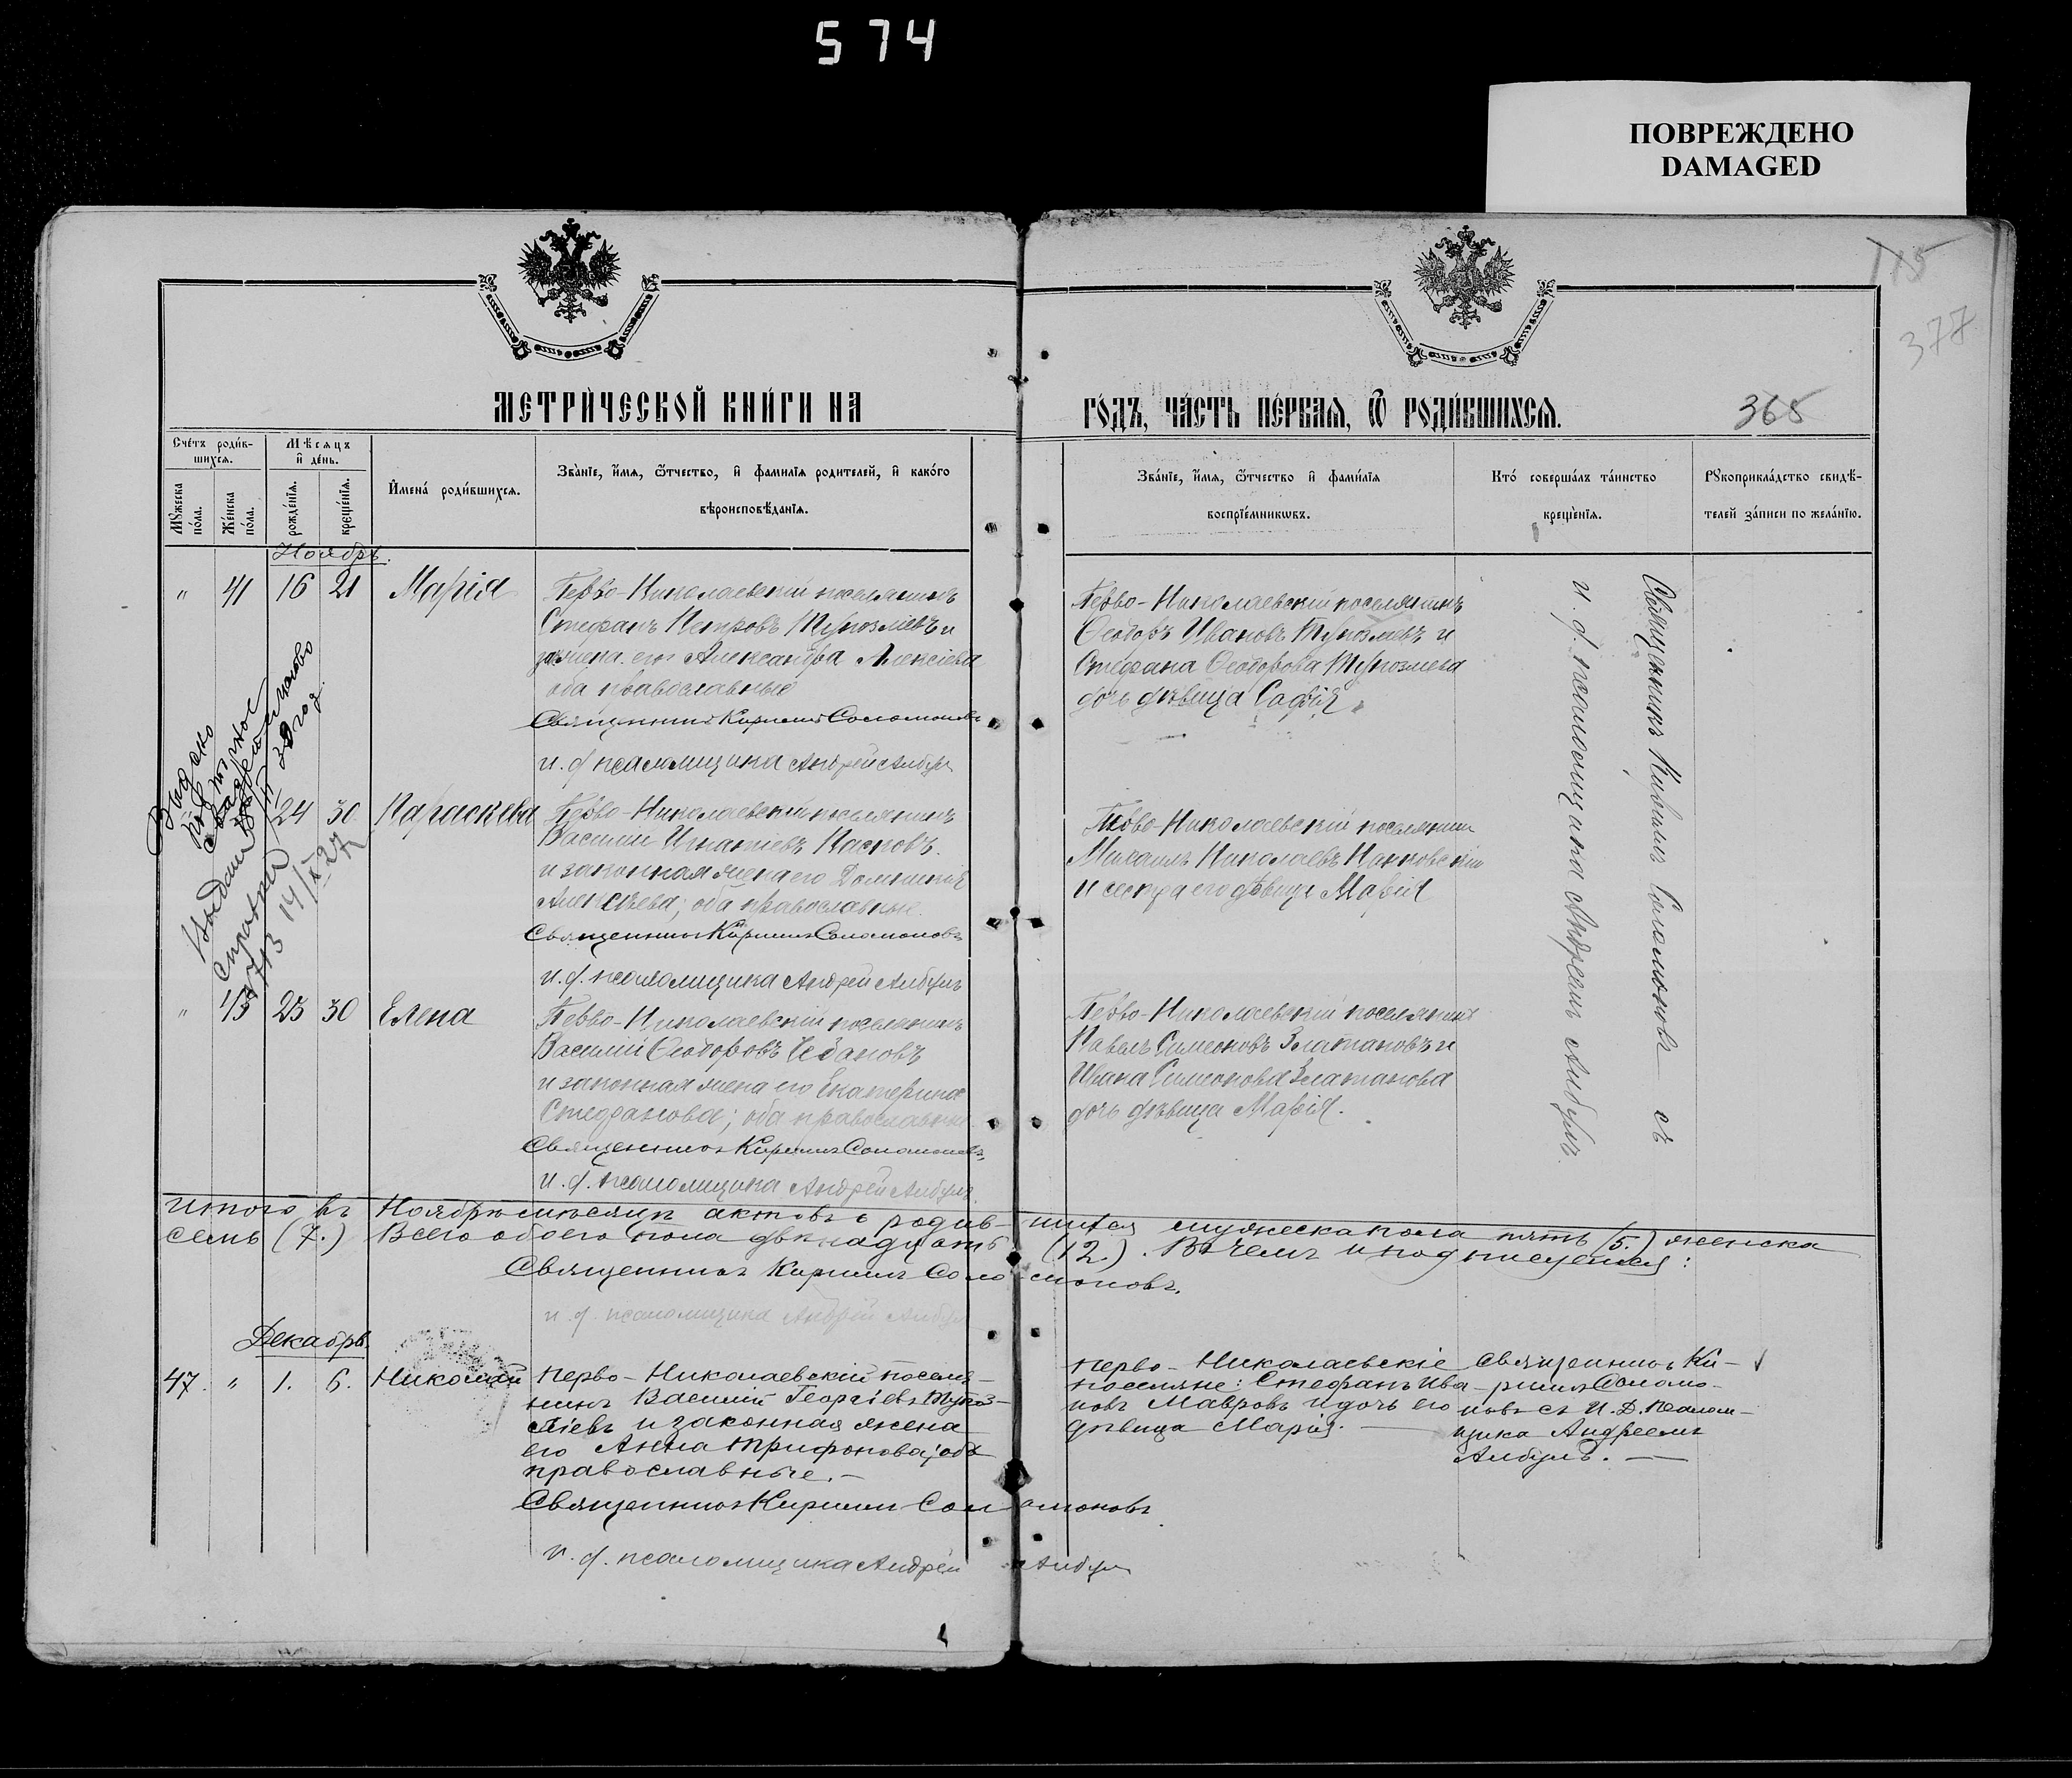 574
ПОВРЕЖДЕНО
DAMAGED
115
377
365
МЕТРИ́ЧЕСКОЙ КНИ́ГИ НА
ГО́ДЪ, ЧА́СТЬ ПЕ́РВАЯ, Ѿ РОДИ́ВШИХСЯ.
Сче́тъ роди́в-
шихся.
Мѣ́сяцъ
и̂ де́нь.
Мꙋ́жеска
по́ла.
Же́нска
по́ла.
рожде́нїя.
креще́нїя.
И̂мена́ роди́вшихся.
Зва́нїе, и́мя, ѻ́тчество, и̂ фамилїя родителей, и̂ како́го
вѣроисповѣ́данїя.
Зва́нїе, и́мя, ѻ́тчество и̂ фами́лїя
воспрїе́мникѡвъ.
Кто́ соверша́лъ та́инство
креще́нїя.
Рꙋкоприкла́дство свидѣ́-
телей за́писи по жела́нїю.
Ноябрь.
" 41 16 21 Марія
Перво-Николаевскій поселянинъ
Стефанъ Петровъ и
жена его Александра Алексіева
оба православные
Священникъ Кириллъ Соломоновъ
и. д. псаломщика Андрей Албулъ
Перво-Николаевскій поселянинъ
Ѳеодоръ Ивановъ и
Стефана Ѳеодорова
дочь дѣвица Софія.
Священникъ Кириллъ Соломоновъ съ
и. д. псаломщика Андреемъ Албулъ.
Выдано
24 30 Параскева
Перво-Николаевскій поселянинъ
Василій Игнатіевъ
и законная жена его Домникія
Алексѣева; оба православные
Священникъ Кириллъ Соломоновъ
и. д. псаломщика Андрей Албулъ
Перво-Николаевскій поселянинъ
Михаилъ Николаевъ
и сестра его дѣвица Марія
" 43 25 30 Елена
Перво-Николаевскій поселянинъ
Василій Ѳеодоровъ Чебановъ
и законная жена его Екатерина
Стефанова; оба православные
Священникъ Кириллъ Соломоновъ
и. д. псаломщика Андрей Албулъ
Перво-Николаевскій поселянинъ
Павелъ Симеоновъ Златановъ и
Ивана Симеонова Златанова
дочь дѣвица Марія.
Итого въ Ноябрѣ мѣсяцѣ актовъ о родив-шихся мужеска пола пять (5.) женска
семь (7.) Всего обоего пола двѣнадцать (12.). Въ чемъ и подписуемся:
Священникъ Кириллъ Соломоновъ.
и. д. псаломщика Андрей Албулъ
Декабрь.
47. " 1. 6. Николай
Перво-Николаевскій поселя-
нинъ Василій Георгіевъ
и законная жена
его Анна Трифонова; оба
православные.—
Священникъ Кириллъ Соломоновъ
и. д. псаломщика Андрей Албулъ
Перво-Николаевскіе
поселяне: Стефанъ Ива-
новъ Мавровъ и дочь его
дѣвица Марія.—
Священникъ Ки-
риллъ Соломо-
новъ съ И. Д. псалом-
щика Андреемъ
Албулъ.—